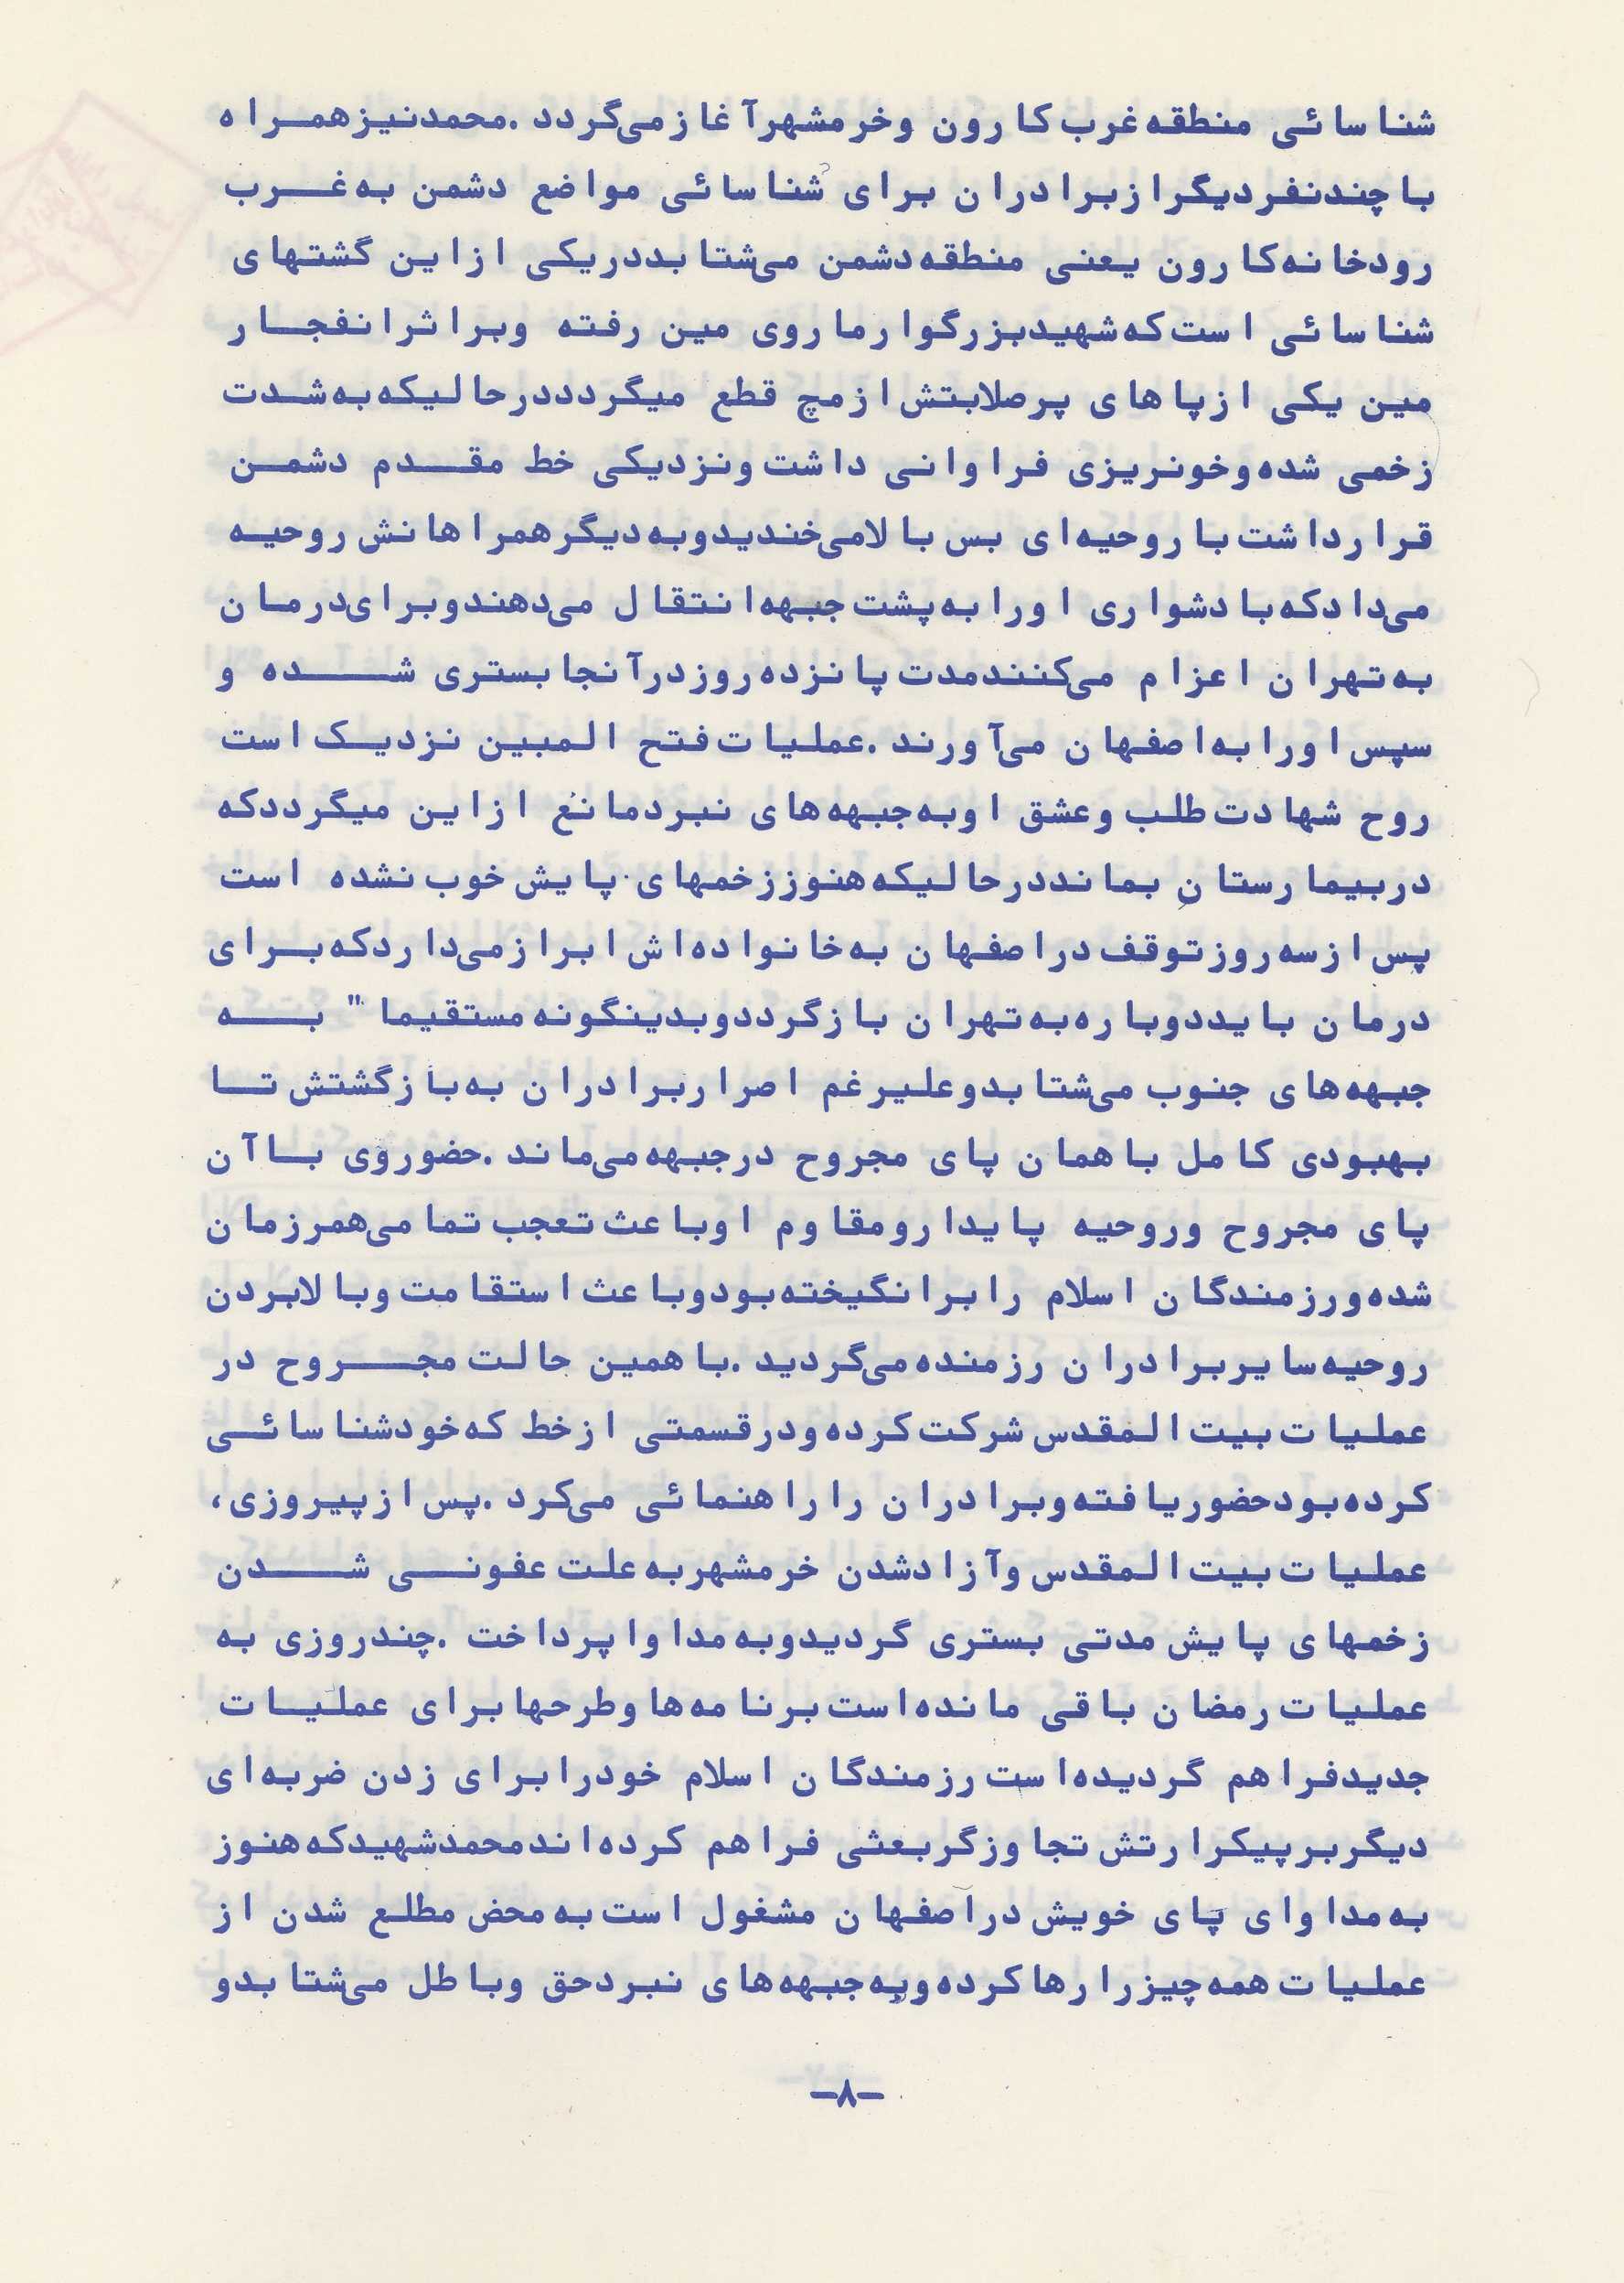 شناسائی منطقه غرب کارون وخرمشهرآغازمی‌گردد .محمدنیزهمراه
باچندنفردیگرازبرادران برای شناسائی مواضع دشمن به غرب
رودخانه کارون یعنی منطقه دشمن می‌شتابددریکی ازاین گشتهای
شناسائی است که شهیدبزرگوارماروی مین رفته وبراثرانفجار
مین یکی ازپاهای پرصلابتش ازمچ قطع میگردددرحالیکه به شدت
زخمی شده وخونریزی فراوانی داشت ونزدیکی خط مقدم دشمن
قرارداشت باروحیه‌ای بس بالامی‌خندیدوبه دیگرهمراهانش روحیه
می‌دادکه بادشواری اورابه پشت جبهه انتقال می‌دهندوبرای درمان
به تهران اعزام می‌کنندمدت پانزده روزدرآنجابستری شده و
سپس اورابه اصفهان می‌آورند .عملیات فتح المبین نزدیک است
روح شهادت طلب وعشق اوبه جبهه‌های نبردمانع ازاین میگرددکه
دربیمارستان بمانددرحالیکه هنوززخمهای پایش خوب نشده است
پس ازسه روزتوقف دراصفهان به خانواده‌اش ابرازمی‌داردکه برای
درمان بایددوباره به تهران بازگرددوبدینگونه مستقیما" به
جبهه‌های جنوب می‌شتابدوعلیرغم اصراربرادران به بازگشتش تا
بهبودی کامل باهمان پای مجروح درجبهه می‌ماند .حضوروی باآن
پای مجروح وروحیه پایدارومقاوم اوباعث تعجب تمامی همرزمان
شده ورزمندگان اسلام رابرانگیخته بودوباعث استقامت وبالابردن
روحیه سایربرادران رزمنده می‌گردید .باهمین حالت مجروح در
عملیات بیت المقدس شرکت کرده ودرقسمتی ازخط که خودشناسائی
کرده بودحضوریافته وبرادران راراهنمائی می‌کرد .پس ازپیروزی،
عملیات بیت المقدس وآزادشدن خرمشهربه علت عفونی شدن
زخمهای پایش مدتی بستری گردیدوبه مداواپرداخت .چندروزی به
عملیات رمضان باقی مانده است برنامه‌ها وطرحهابرای عملیات
جدیدفراهم گردیده است رزمندگان اسلام خودرابرای زدن ضربه‌ای
دیگربرپیکرارتش تجاوزگربعثی فراهم کرده‌اندمحمدشهیدکه هنوز
به مداوای پای خویش دراصفهان مشغول است به محض مطلع شدن از
عملیات همه چیزرارهاکرده وبه جبهه‌های نبردحق وباطل می‌شتابدو
-۸-